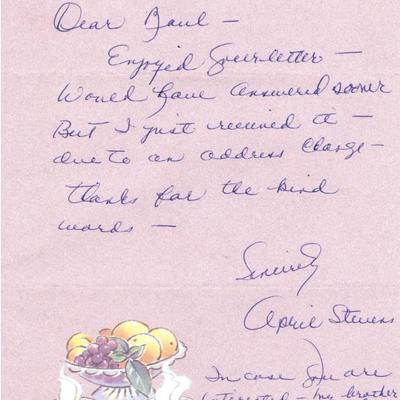 Dear Paul —
Enjoyed your letter —
Would have answered sooner
But I just received it —
due to an address change —
thanks for the kind
words —
Sincerely
April Stevens
In case you are
interested — my brother